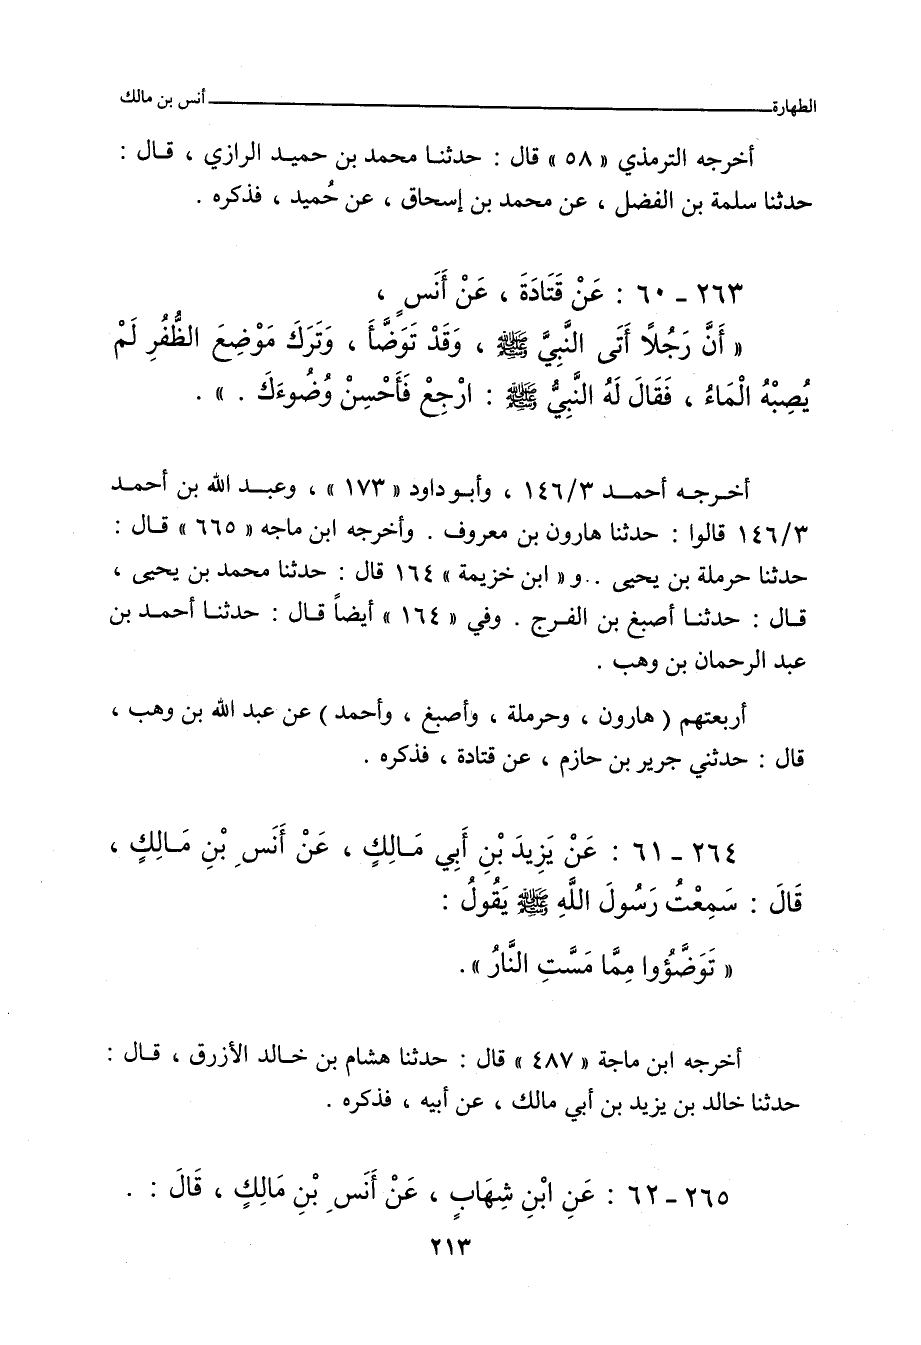 الطهارة ــــــــــــــــــــ أنس بن مالك
أخرجه الترمذي « ٥٨ » قال : حدثنا محمد بن حميد الرازي ، قال :
حدثنا سلمة بن الفضل ، عن محمد بن إسحاق ، عن حُميد ، فذكره .
٢٦٣ ـ ٦٠ : عَنْ قَتَادَةَ ، عَنْ أَنَسٍ ،
« أَنَّ رَجُلاً أَتَى النَّبِيَّ ﷺ ، وَقَدْ تَوَضَّأَ ، وَتَرَكَ مَوْضِعَ الظُّفُرِ لَمْ
يُصِبْهُ الْمَاءُ ، فَقَالَ لَهُ النَّبِيُّ ﷺ : ارْجِعْ فَأَحْسِنْ وُضُوءَكَ . » .
أخرجه أحمد ١٤٦/٣ ، وأبو داود « ١٧٣ » ، وعبد الله بن أحمد
١٤٦/٣ قالوا : حدثنا هارون بن معروف . وأخرجه ابن ماجه « ٦٦٥ » قال :
حدثنا حرملة بن يحيى .. و « ابن خزيمة » ١٦٤ قال : حدثنا محمد بن يحيى ،
قال : حدثنا أصبغ بن الفرج . وفي « ١٦٤ » أيضاً قال : حدثنا أحمد بن
عبد الرحمان بن وهب .
أربعتهم ( هارون ، وحرملة ، وأصبغ ، وأحمد ) عن عبد الله بن وهب ،
قال : حدثني جرير بن حازم ، عن قتادة ، فذكره .
٢٦٤ ـ ٦١ : عَنْ يَزِيدَ بْنِ أَبِي مَالِكٍ ، عَنْ أَنَسِ بْنِ مَالِكٍ ،
قَالَ : سَمِعْتُ رَسُولَ اللَّهِ ﷺ يَقُولُ :
« تَوَضَّؤُوا مِمَّا مَسَّتِ النَّارُ » .
أخرجه ابن ماجة « ٤٨٧ » قال : حدثنا هشام بن خالد الأزرق ، قال :
حدثنا خالد بن يزيد بن أبي مالك ، عن أبيه ، فذكره .
٢٦٥ ـ ٦٢ : عَنِ ابْنِ شِهَابٍ ، عَنْ أَنَسِ بْنِ مَالِكٍ ، قَالَ : .
٢١٣